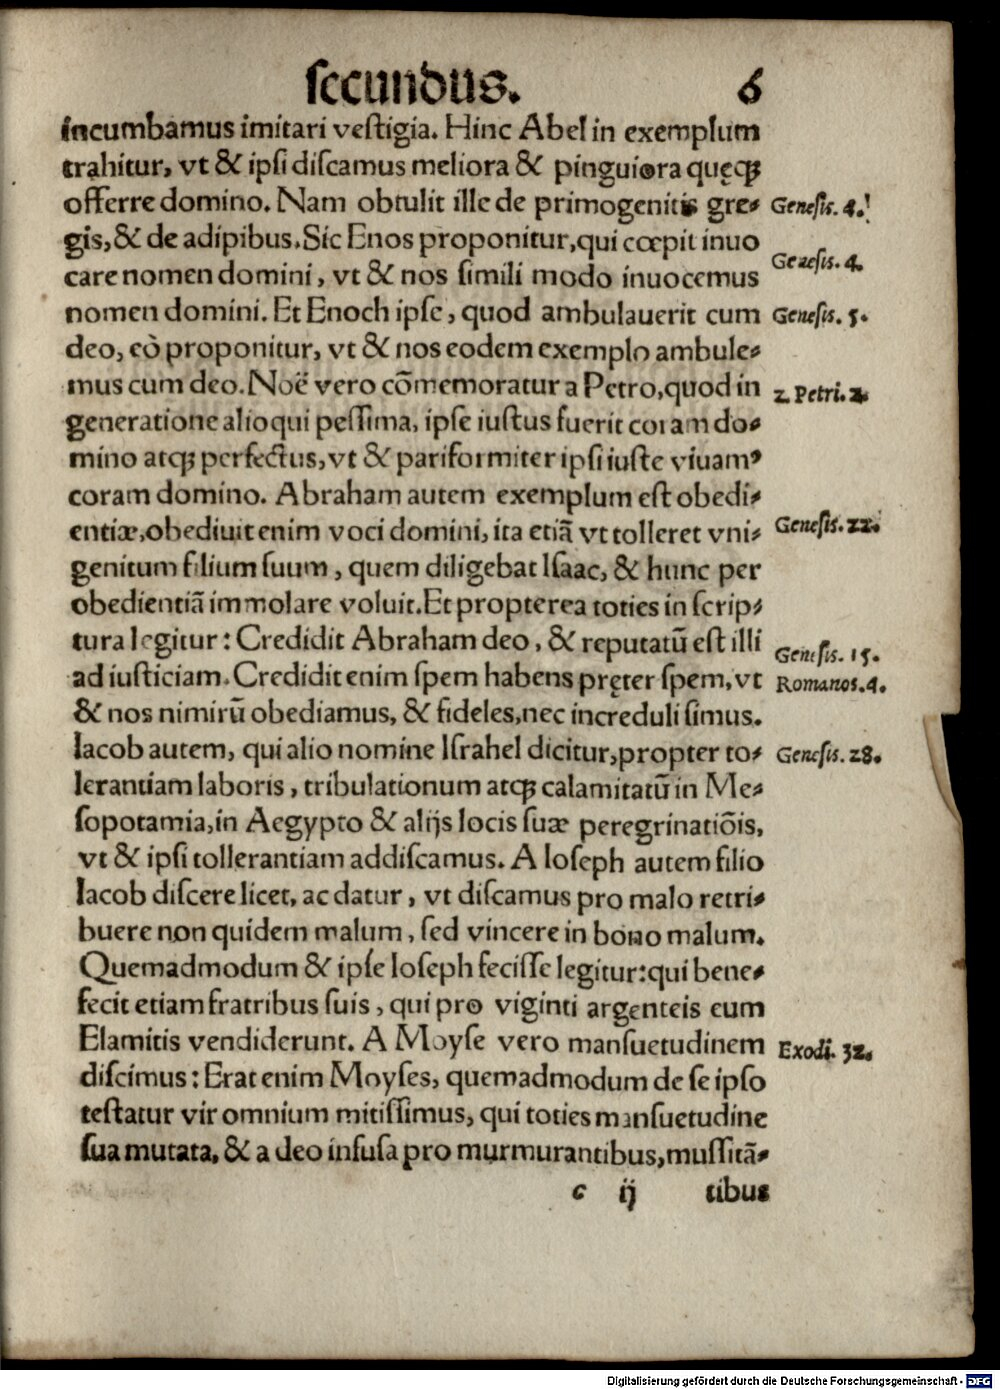 secundus. 6
incumbamus imitari vestigia. Hinc Abel in exemplum
trahitur, vt & ipsi discamus meliora & pinguiora quęqꝫ
offerre domino. Nam obtulit ille de primogenitis gre⸗ Genesis. 4.
gis, & de adipibus. Sic Enos proponitur, qui cœpit inuo
care nomen domini, vt & nos simili modo inuocemus Genesis. 4.
nomen domini. Et Enoch ipse, quod ambulauerit cum Genesis. 5.
deo, eò proponitur, vt & nos eodem exemplo ambule⸗
mus cum deo. Noë vero cōmemoratur a Petro, quod in 2. Petri. 2.
generatione alioqui pessima, ipse iustus fuerit coram do⸗
mino atqꝫ perfectus, vt & pariformiter ipsi iuste viuamꝰ
coram domino. Abraham autem exemplum est obedi⸗
entiæ, obediuit enim voci domini, ita etiā vt tolleret vni⸗ Genesis. 22.
genitum filium suum, quem diligebat Isaac, & hunc per
obedientiā immolare voluit. Et propterea toties in scrip⸗
tura legitur: Credidit Abraham deo, & reputatū est illi Genesis. 15.
ad iusticiam. Credidit enim spem habens pręter spem, vt Romanos. 4.
& nos nimirū obediamus, & fideles, nec increduli simus.
Iacob autem, qui alio nomine Israhel dicitur, propter to⸗ Genesis. 28.
lerantiam laboris, tribulationum atqꝫ calamitatū in Me⸗
sopotamia, in Aegypto & alijs locis suæ peregrinatiōis,
vt & ipsi tollerantiam addiscamus. A Ioseph autem filio
Iacob discere licet, ac datur, vt discamus pro malo retri⸗
buere non quidem malum, sed vincere in bono malum.
Quemadmodum & ipse Ioseph fecisse legitur: qui bene⸗
fecit etiam fratribus suis, qui pro viginti argenteis eum
Elamitis vendiderunt. A Moyse vero mansuetudinem Exodi. 32.
discimus: Erat enim Moyses, quemadmodum de se ipso
testatur vir omnium mitissimus, qui toties mansuetudine
sua mutata, & a deo infusa pro murmurantibus, mussitā⸗
c ij tibus
Digitalisierung gefördert durch die Deutsche Forschungsgemeinschaft - DFG